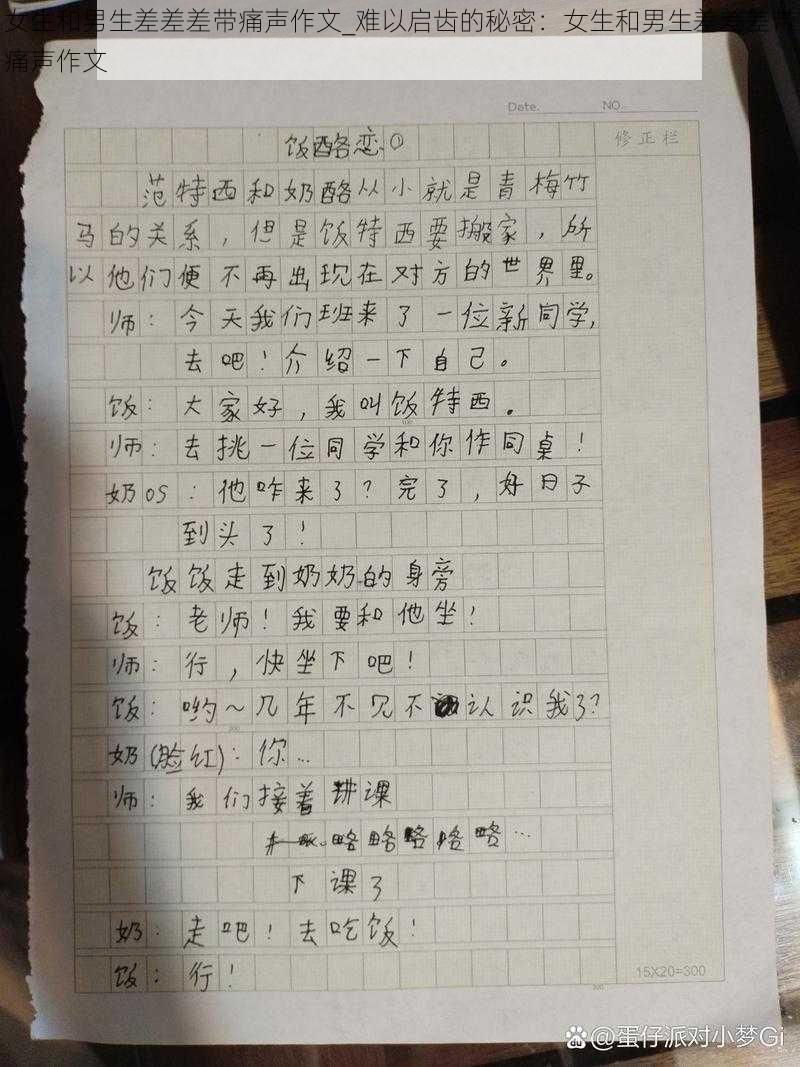 女生和男生差差差带痛声作文_难以启齿的秘密：女生和男生差差差带
痛声作文
Date. NO.
饭酪恋①
修正栏
范特西和奶酪从小就是青梅竹
马的关系，但是饭特西要搬家，所
以他们便不再出现在对方的世界里。
师：今天我们班来了一位新同学，
去吧！介绍一下自己。
饭：大家好，我叫饭特西。
师：去挑一位同学和你作同桌！
奶OS：他咋来了？完了，好日子
到头了！
饭饭走到奶奶的身旁
饭：老师！我要和他坐！
师：行，快坐下吧！
饭：哟～几年不见不认识我了？
奶（脸红）：你…
师：我们接着讲课
略略略略略…
下课了
奶：走吧！去吃饭！
饭：行！
15X20=300
@蛋仔派对小梦Gi